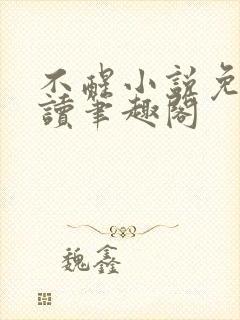 不醒小說免
讀筆趣閣
魏鑫